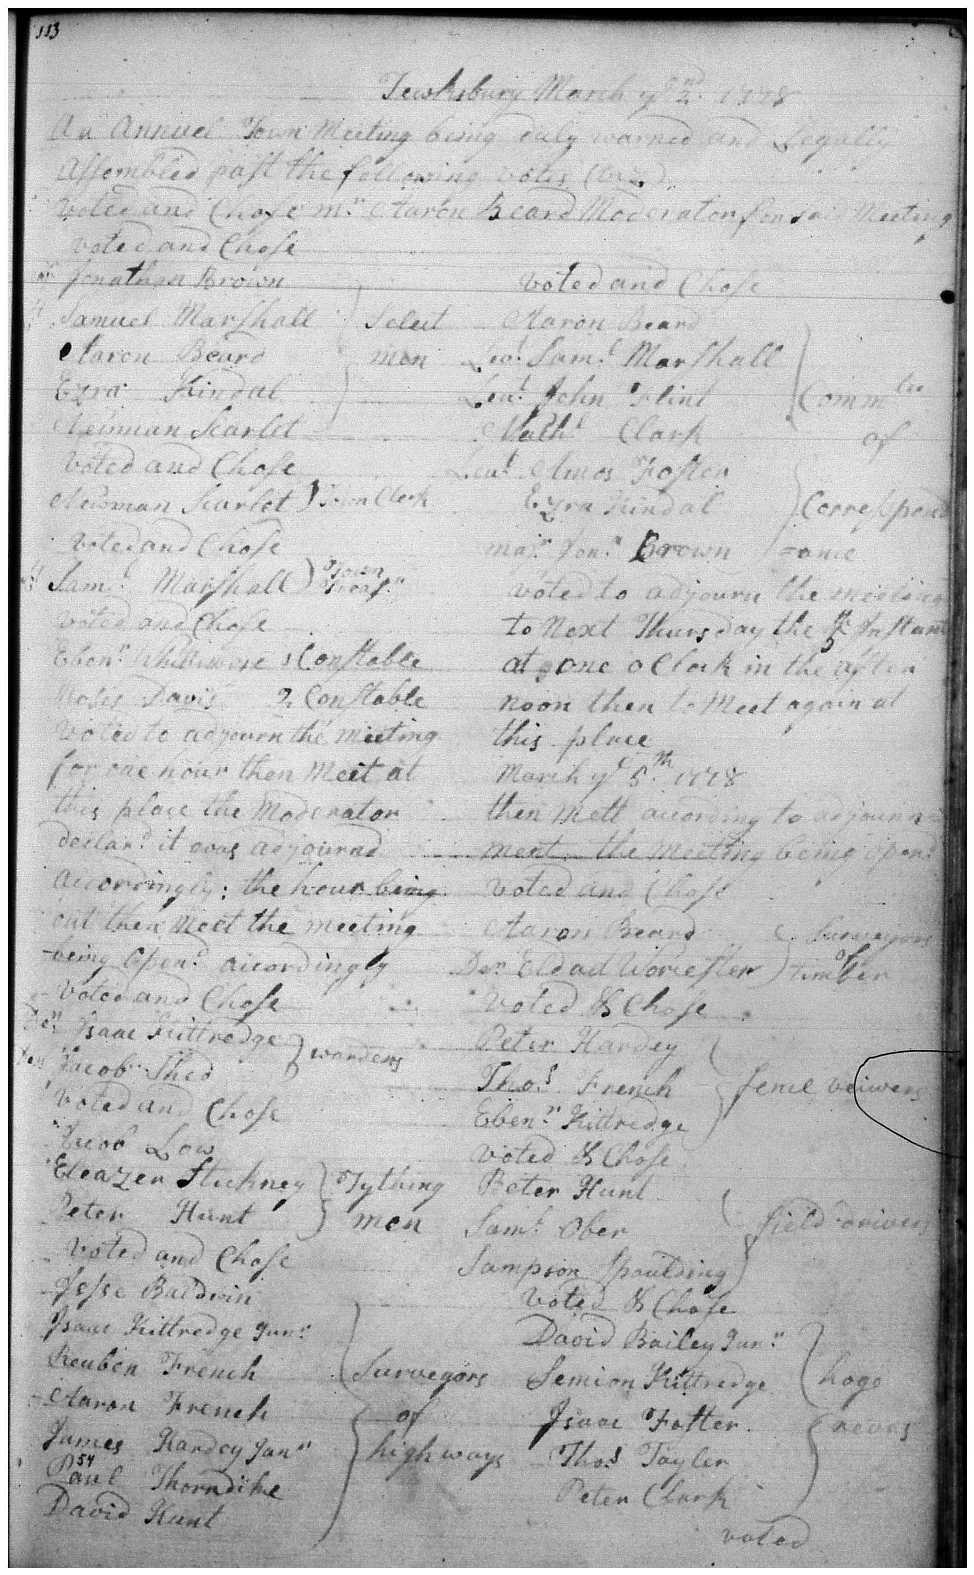 113
Tewksbury March ye 2nd 1778
An Annuel Town Meeting being duly warned and Legally
Assembled past the following votes (viz)
Voted and Chose mr Aaron Beard Moderator for sd Meeting
voted and Chose
Jonathan Brown
Samuel Marshall } Select
Aaron Beard } men
Ezra Kindal
Newman Scarlet
Voted and Chose
Newman Scarlet } Town Clerk
Voted and Chose
Saml Marshall ) Town Treasr
voted and Chose
Ebenr Whittemore 1 Constable
Moses Davis 2 Constable
Voted to adjourn the meeting
for one hour then Meet at
this place the Moderator
declard it was adjournd
Accordingly: the hour being
out then Meet the meeting
being Opend accordingly
Voted and Chose
Den Isaac Kittredge } wardens
Jacob Shed
Voted and Chose
Jacob Low
Eleazer Stickney } Tything
Peter Hunt } men
Voted and Chose
Jesse Baldwin
Isaac Kittredge Junr
Reuben French } Surveyors
Aaron French } of
James Hardey Junr } highways
54
Paul Thorndike
David Hunt
voted and Chose
Aaron Beard
Leut Saml Marshall
Leut John Flint } Commtee
Nathl Clark of
Leut Amos Foster
Ezra Kindal } Correspond
majr Jonn Brown =ance
voted to adjourn the meeting
to Next Thursday the 5th Instant
at one o Clock in the after
noon then to Meet again at
this place
March ye 5th 1778
then Mett according to adjourn=
ment the meeting being opend
voted and Chose
Aaron Beard ( Surveyors of
Den Eldad Worcester ) timber
Voted & Chose
Peter Hardey
Thos French } fence veiwers
Ebenr Kittredge
Voted & Chose
Peter Hunt
Saml Ober } field drivers
Sampson Spaulding
Voted & Chose
David Bailey Junr
Semion Kittredge } hogs
Isaac Foster } reves
Thos Tayler
Peter Clark
voted